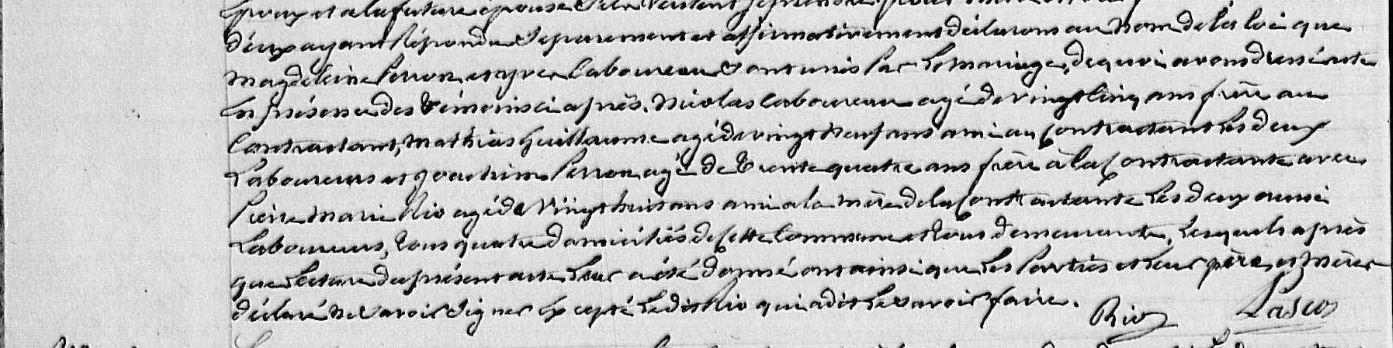 époux et a la future épouse s'ils veulent se prendre pour
deux ayant répondu séparement et affirmativement déclarons au nom de la loi que
Magdeleine Perron et yves Laboureau sont unis par le mariage, de quoi avons dressé acte
en présence des témoins ci après. Nicolas Laboureau agé de vingt cinq ans frère au
Contractant, Mathias Guillaume agé de vingt neuf ans ami au contractant les deux
Laboureurs et joachim Perron agé de trente quatre ans frère à la Contractante avec
Pierre Marie Rio agé de Vingt huit ans ami a la mère de la Contractante les deux aussi
Laboureurs, tous quatre domiciliés de cette Commune et tous demeurants, lesquels après
que lecture du présent acte leur a été donné ont ainsi que les Parties et leurs pères et mères
déclaré ne savoir signer excepté le dit Rio qui a dit le savoir faire.
Rio